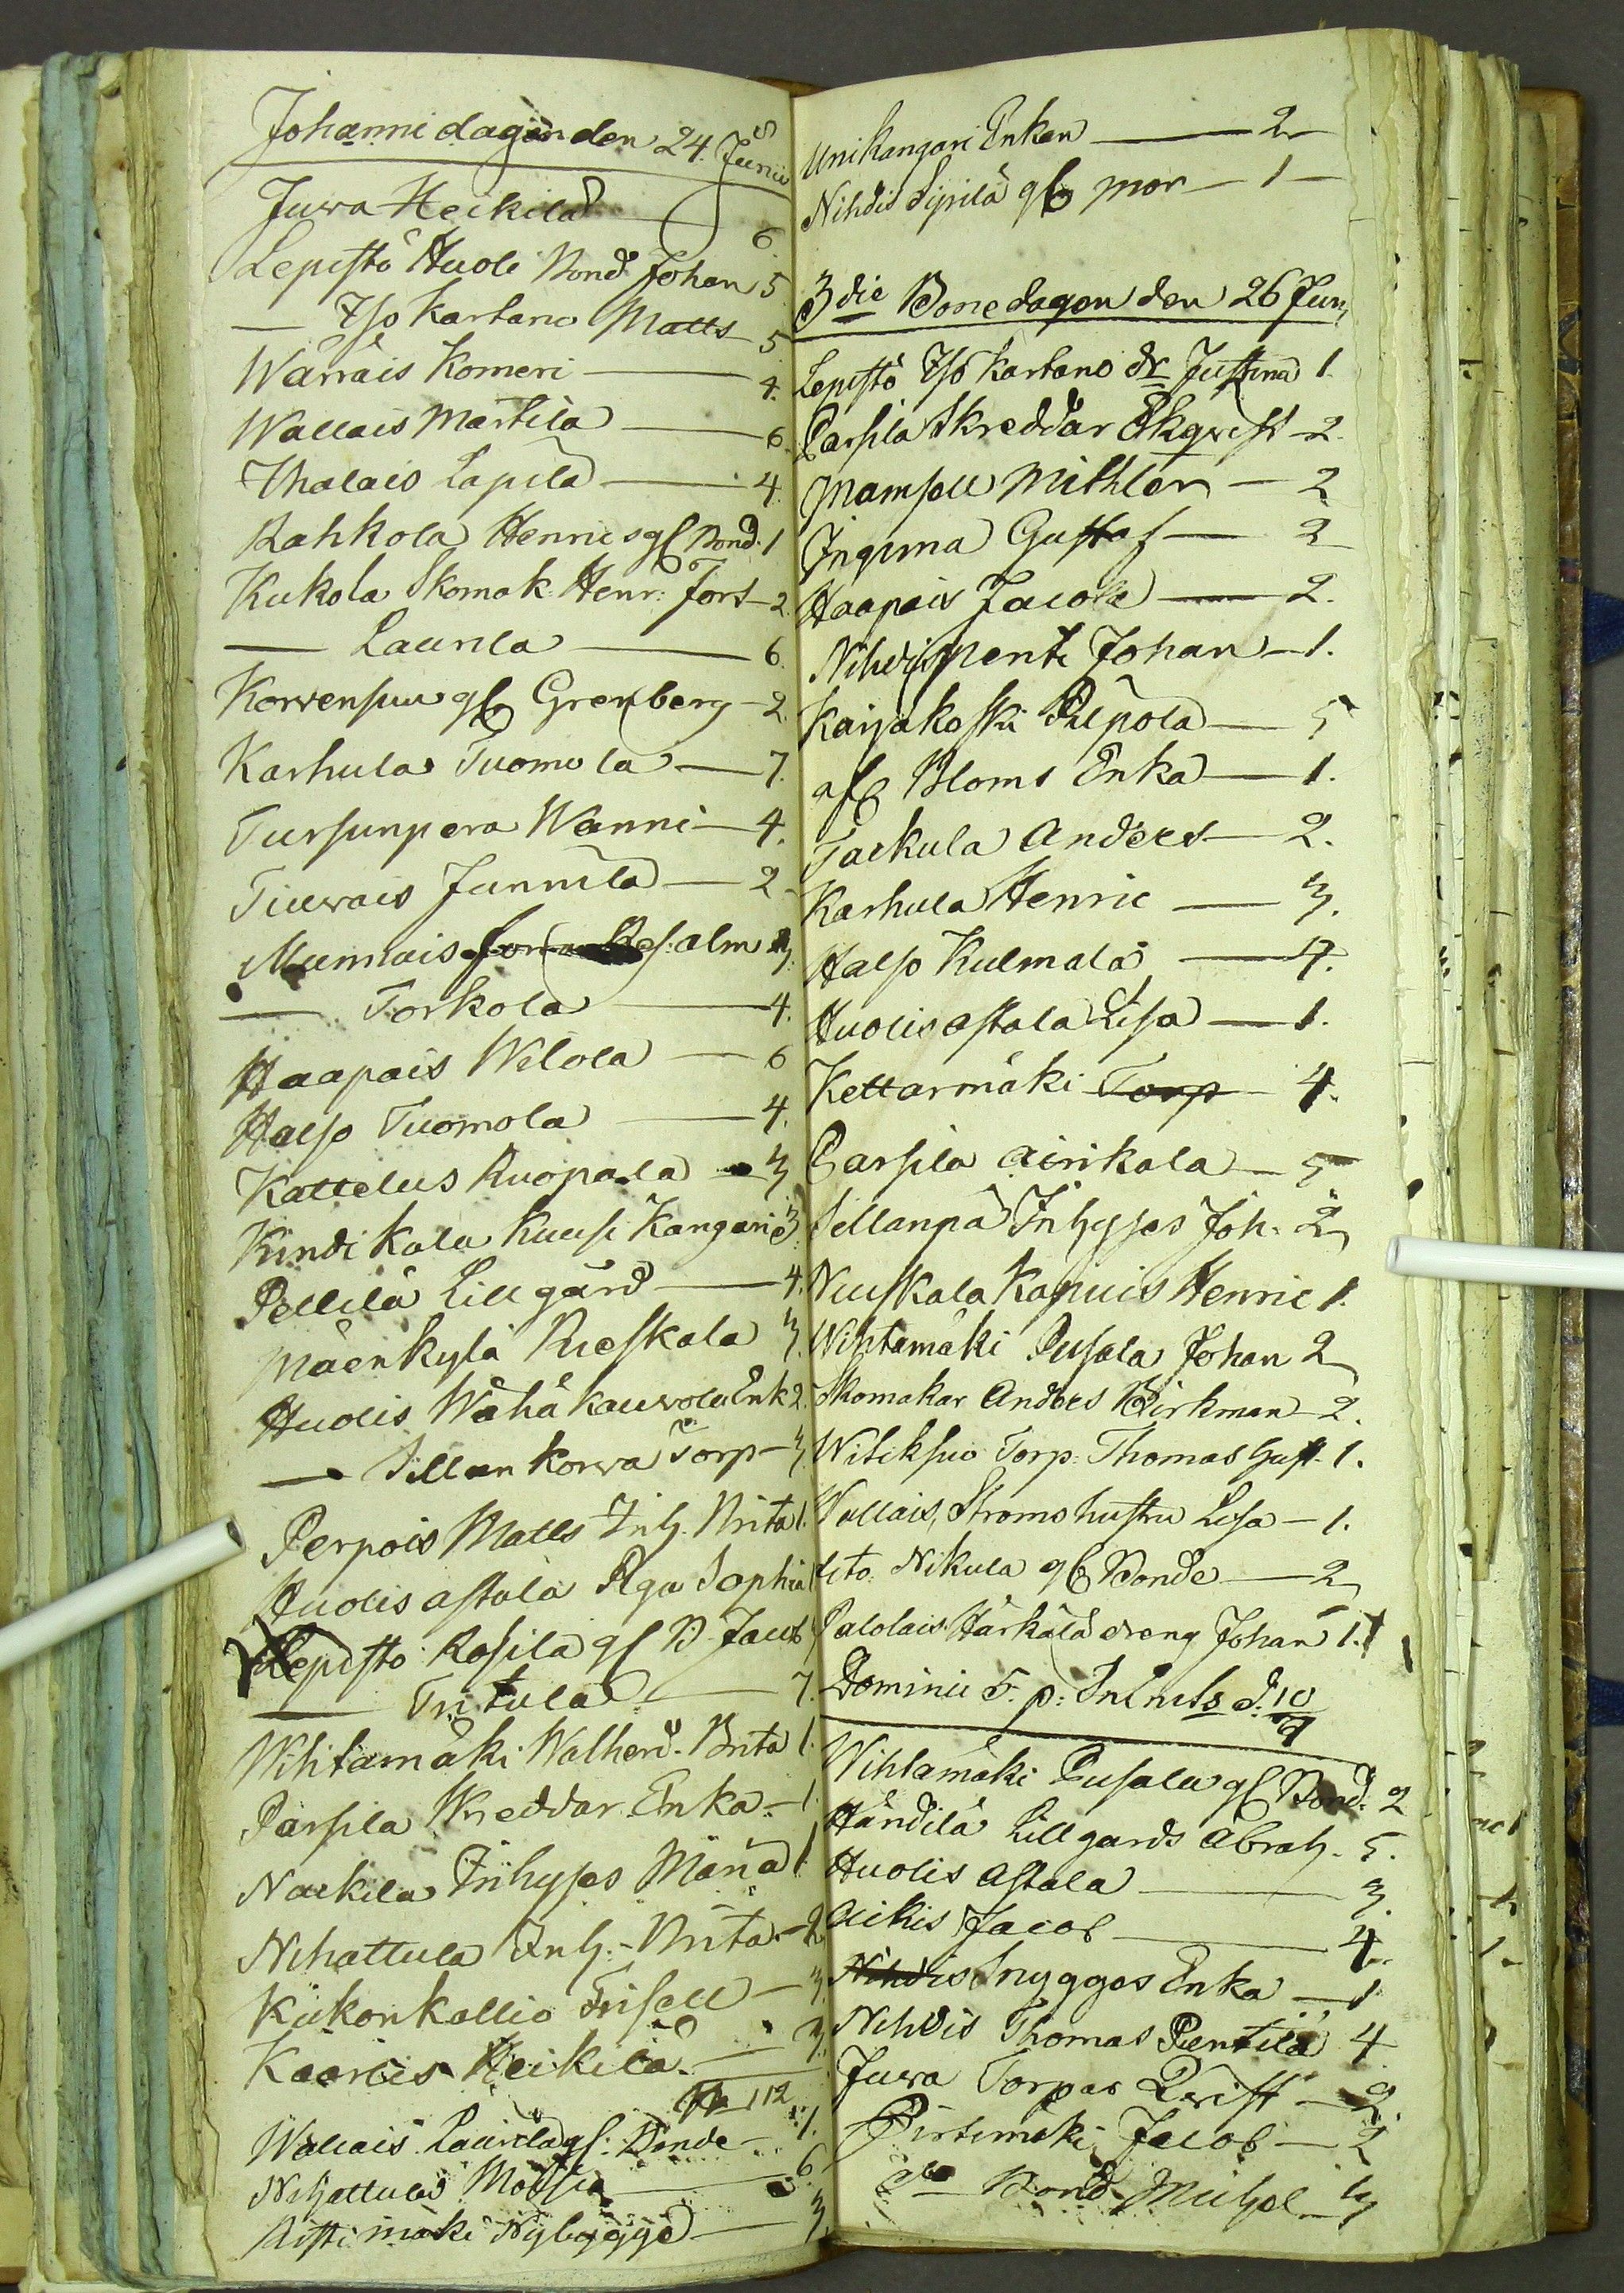 Johanni dagen den 24. Junii
Juva Heikilä 6
Lepistö Huoli Bond Johan 5
— Iso Kartano Matts 5
Wärräis Komeri — 4.
Wallais Martila — 6.
Thalais Lapila — 4.
Rahkola Henrics gl Bond. 1
Kukola Skomak. Henr: Fors — 2.
— Laurila — 6.
Korvensuu gl Grenberg — 2.
Karhula Tuomola — 7.
Tursunpera Wanni — 4.
Tiuvais Junnila — 2
Munnais alm 3
— Torkola — 4.
Haapais Wilola — 6
Halso Tuomola — 4.
Kattelus Ruopala — 3
Kindikala Kuusi Kangari 3
Pellilä Lillgård — 4.
Mäenkylä Rieskala 3.
Huolis Wähä Kauvola Enk 2.
— Sillan Korva Torp — 3
Perpois Matts Inh. Brita 1.
Huolis astala Piga Sophia 1
Lepistö Rosila gl B. Jacob
— Tritula — 7.
Wihtamäki Walhend. Brita 1.
Parsila Skreddar Enka. — 1.
Naukila Inhyses Maria 1
Nihattula Inh. Brita — 2
Kukonkallio Frisell — 3.
Kaaris Heikilä — 3.
112
Wallais Laurila gl. Bonde 1.
Nihattula Mattila — 6
Risti mäki Nybygge — 3.
Unikangari Enkan — 2
Nihdis Sipilä gl mor — 1
3die Bönedagen den 26 Jun,
Lepistö Iso Kartano dr Justina 1.
Parsila Skreddar Ekqvist 2.
Mamsell Mithler — 2
Ingima Gustaf — 2
Haapais Jacob — 2.
Nihdis Penti Johan — 1.
Karjakoski Pilpola — 5
afl Bloms Enka — 1.
Tackula Anders — 2.
Karhula Henric — 3.
Halso Kulmala — 4.
Huolis astala Lisa — 1.
Kettarmäki Torp 4.
Parsila Airikala — 5
Sillanpä Inhyses Joh. 2
Nuuskala Kapuis Henric 1.
Wihtamäki Pusala Johan 2
Skomakar Anders Björkman 2.
Witiksuo Torp. Thomas hust. 1.
Wallais, Ströms hustru Lisa — 1.
dito Nikula gl Bonde — 2
Palolais Härkälä dreng Johan 1.
Dominic 5. p: Trinits d. 10/7
Wihtamäki Pusala gl Bond. 2
Händilä Lillgårds Abrah. 5.
Huolis astala — 3.
Aikis Jacob — 4.
Nihdis Snygges Enka — 1
Nihdis Thomas Pentilä 4
Juva Torpar Qvist — 2
Pirtimäki Jacob — 2
Bond Michel — 3